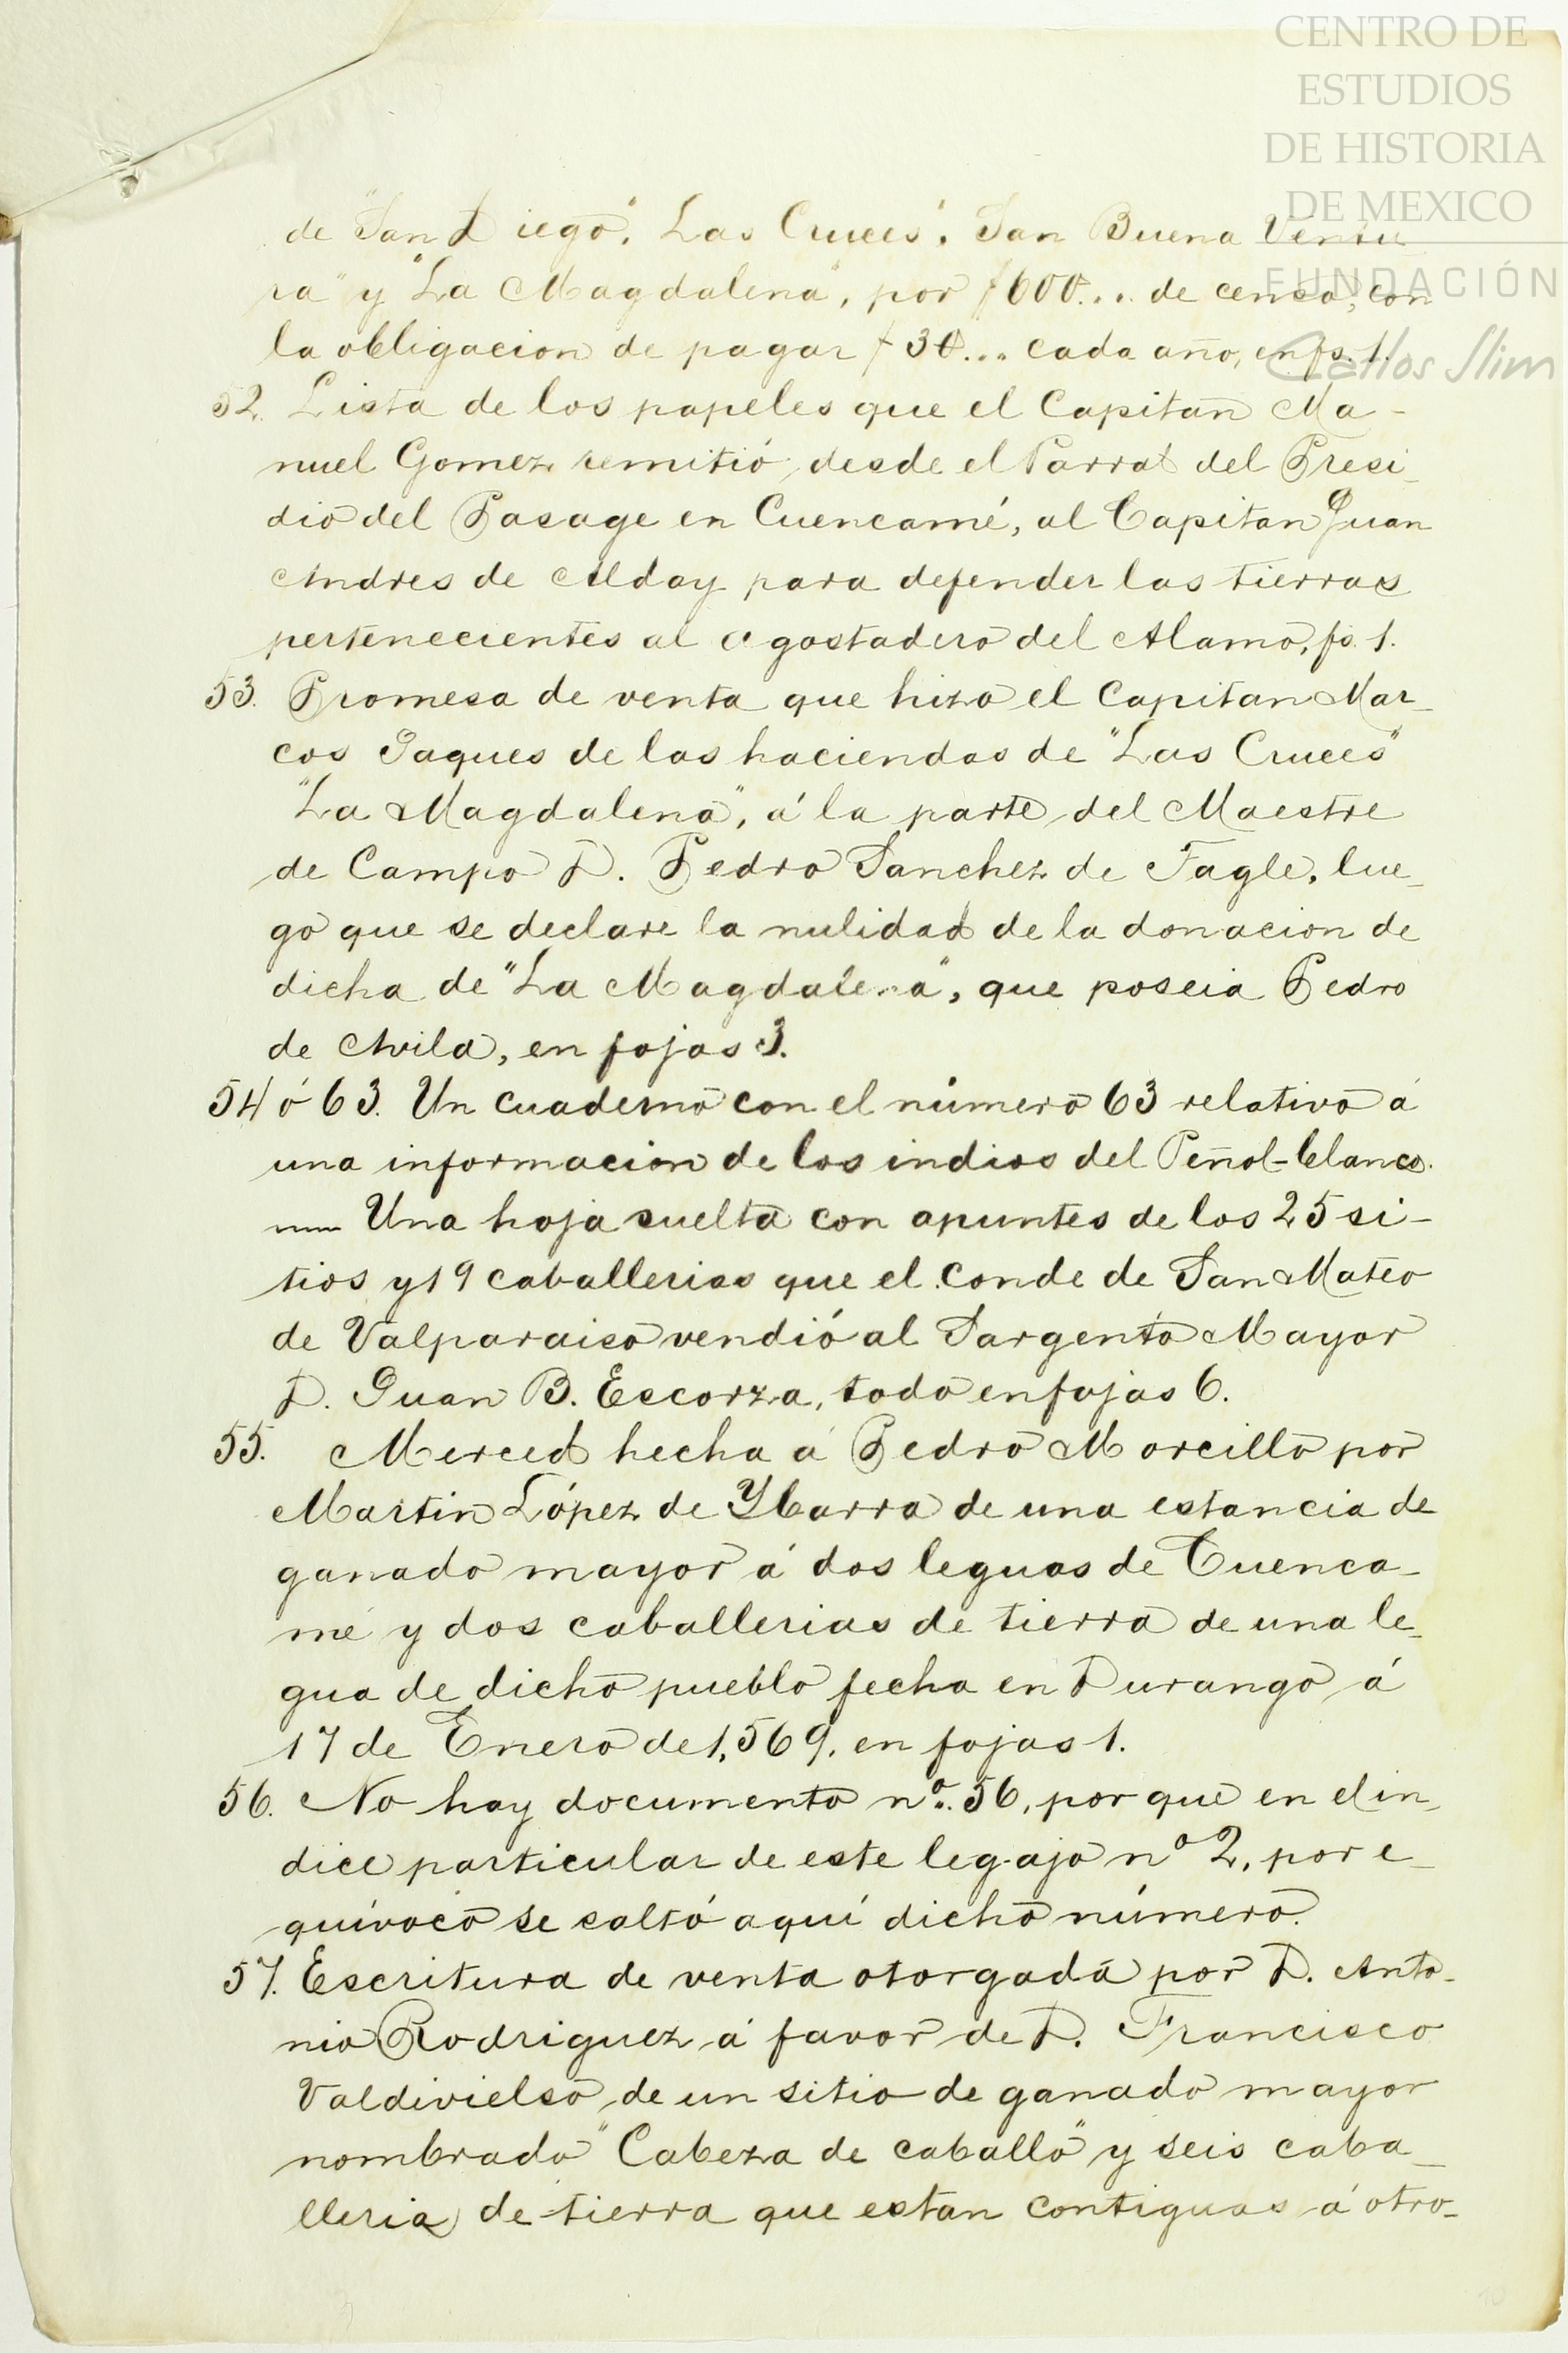 CENTRO DE
ESTUDIOS
DE HISTORIA
DE MEXICO
FUNDACIÓN
Carlos Slim
de "San Diego", Las Cruces", San Buena Ventu
ra" y "La Magdalena", por $600... de censo, con
la obligacion de pagar $30... cada año, en fs. 1.
52. Lista de los papeles que el Capitan Ma-
nuel Gomez remitió, desde el Parral del Presi-
dio del Pasage en Cuencamé, al Capitan Juan
Andres de Alday para defender las tierras
pertenecientes al agostadero del Alamo, fs. 1.
53. Promesa de venta que hizo el Capitan Mar-
cos Jaques de las haciendas de "Las Cruces"
"La Magdalena", á la parte del Maestre
de Campo D. Pedro Sanchez de Tagle, lue-
go que se declare la nulidad de la donacion de
dicha de "La Magdalena", que poseia Pedro
de Avila, en fojas 3.
54 ó 63. Un cuaderno con el número 63 relativo á
una informacion de los indios del Peñol-blanco.
Una hoja suelta con apuntes de los 25 si-
tios y 19 caballerias que el Conde de San Mateo
de Valparaiso vendió al Sargento Mayor
D. Juan B. Escorza, todo en fojas 6.
55. Merced hecha á Pedro Morcillo por
Martin López de Ybarra de una estancia de
ganado mayor á dos leguas de Cuenca-
mé y dos caballerias de tierra de una le-
gua de dicho pueblo fecha en Durango á
17 de Enero de 1,569, en fojas 1.
56. No hay documento nº. 56, por que en el in-
dice particular de este legajo nº 2, por e-
quívoco se saltó aquí dicho número.
57. Escritura de venta otorgada por D. Anto-
nio Rodriguez á favor de D. Francisco
Valdivielso, de un sitio de ganado mayor
nombrado "Cabeza de caballo" y seis caba-
lleria de tierra que estan contiguas á otro-